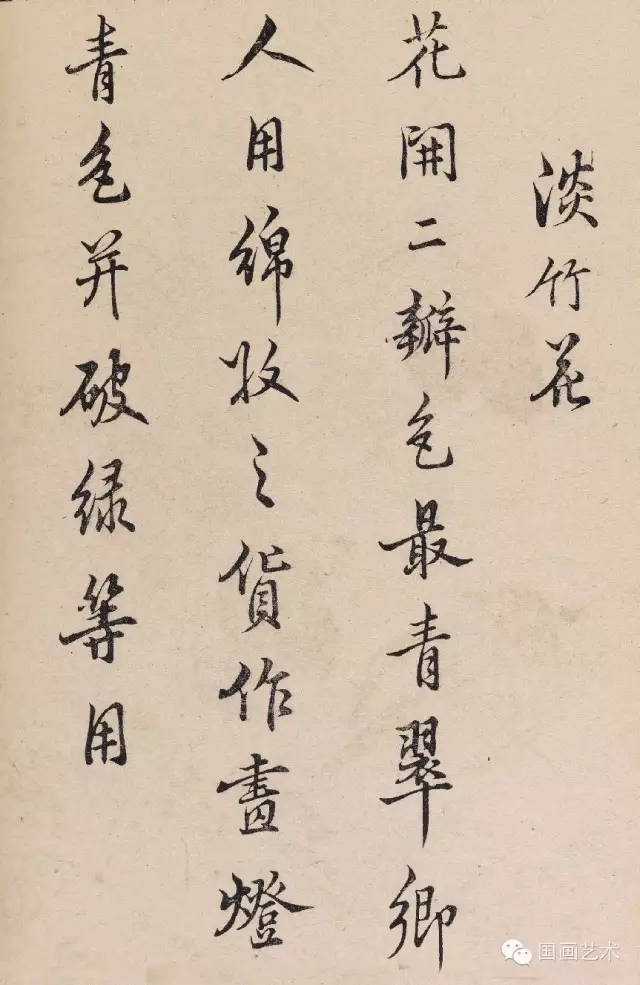 淡竹花
花開二瓣色最青翠鄉
人用綿收之貨作畫燈
青色并破绿等用
国画艺术